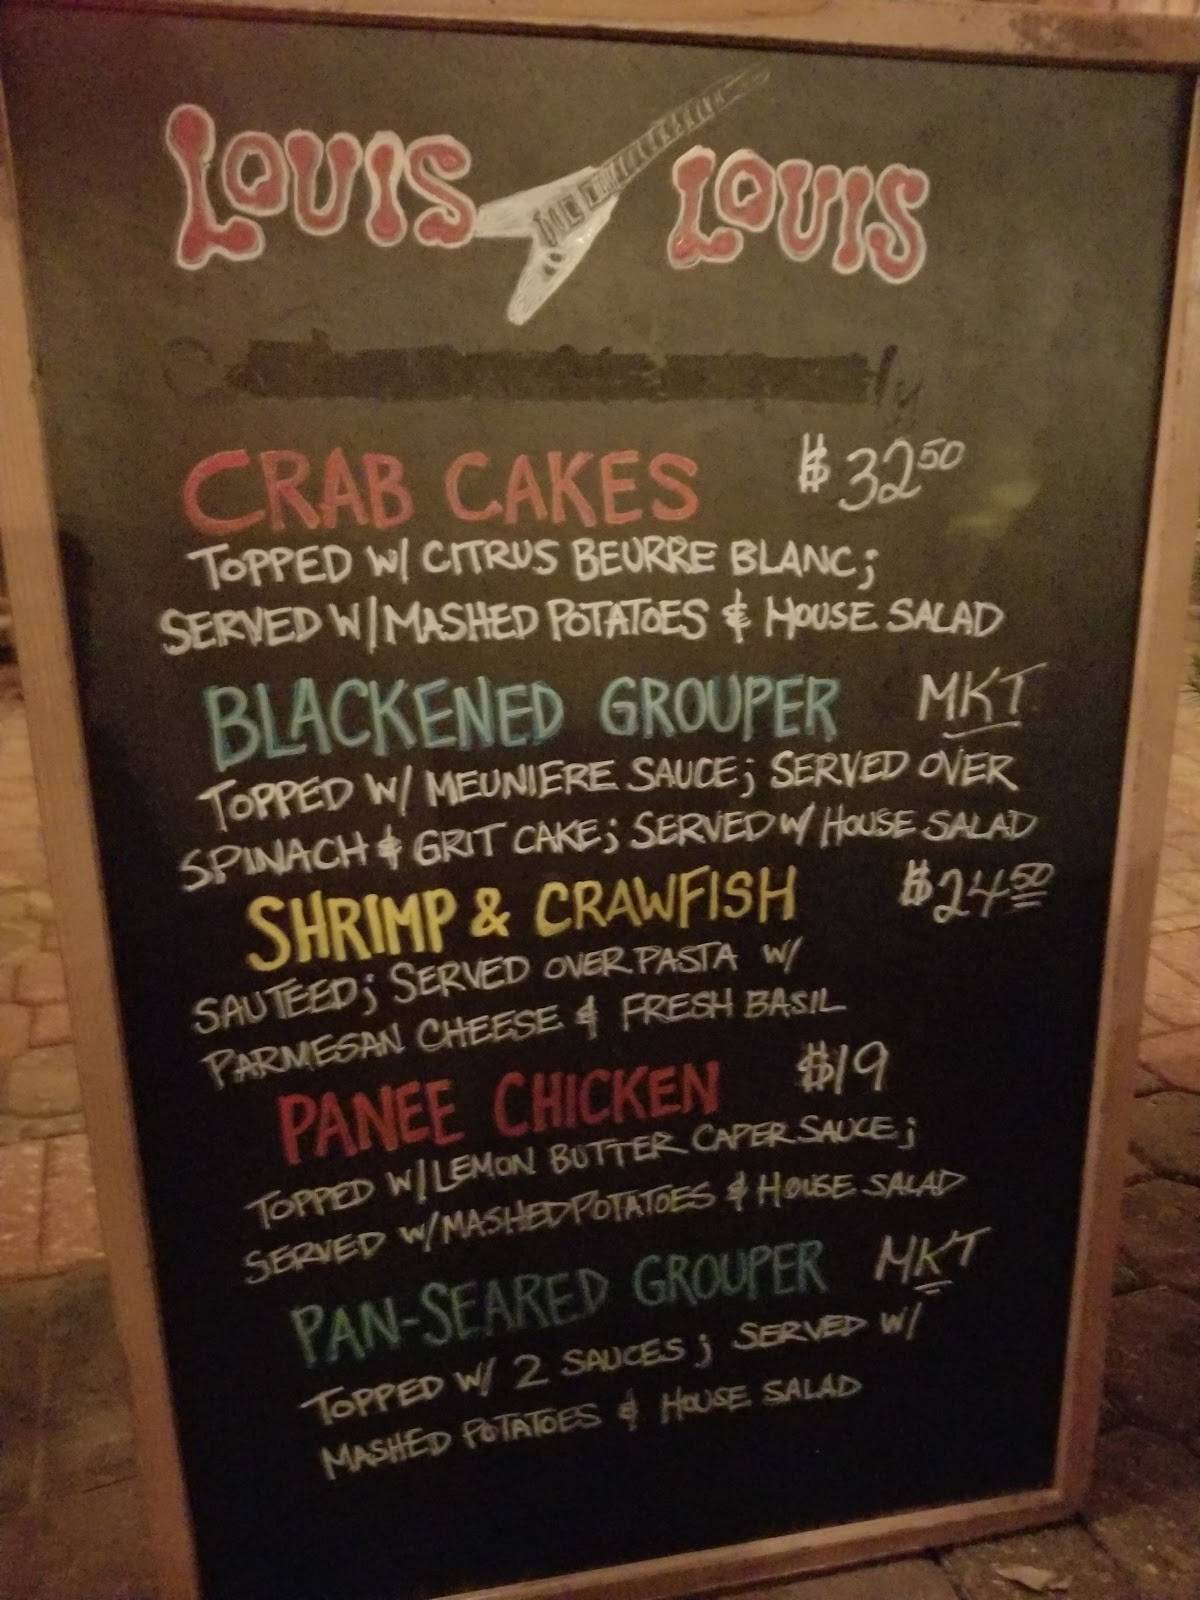 LOUIS LOUIS
CRAB CAKES $32.50
TOPPED W/ CITRUS BEURRE BLANC;
SERVED W/ MASHED POTATOES & HOUSE SALAD
BLACKENED GROUPER MKT
TOPPED W/ MEUNIERE SAUCE; SERVED OVER
SPINACH & GRIT CAKE; SERVED W/ HOUSE SALAD
SHRIMP & CRAWFISH $24.50
SAUTEED; SERVED OVER PASTA W/
PARMESAN CHEESE & FRESH BASIL
PANEE CHICKEN $19
TOPPED W/ LEMON BUTTER CAPER SAUCE;
SERVED W/ MASHED POTATOES & HOUSE SALAD
PAN-SEARED GROUPER MKT
TOPPED W/ 2 SAUCES; SERVED W/
MASHED POTATOES & HOUSE SALAD